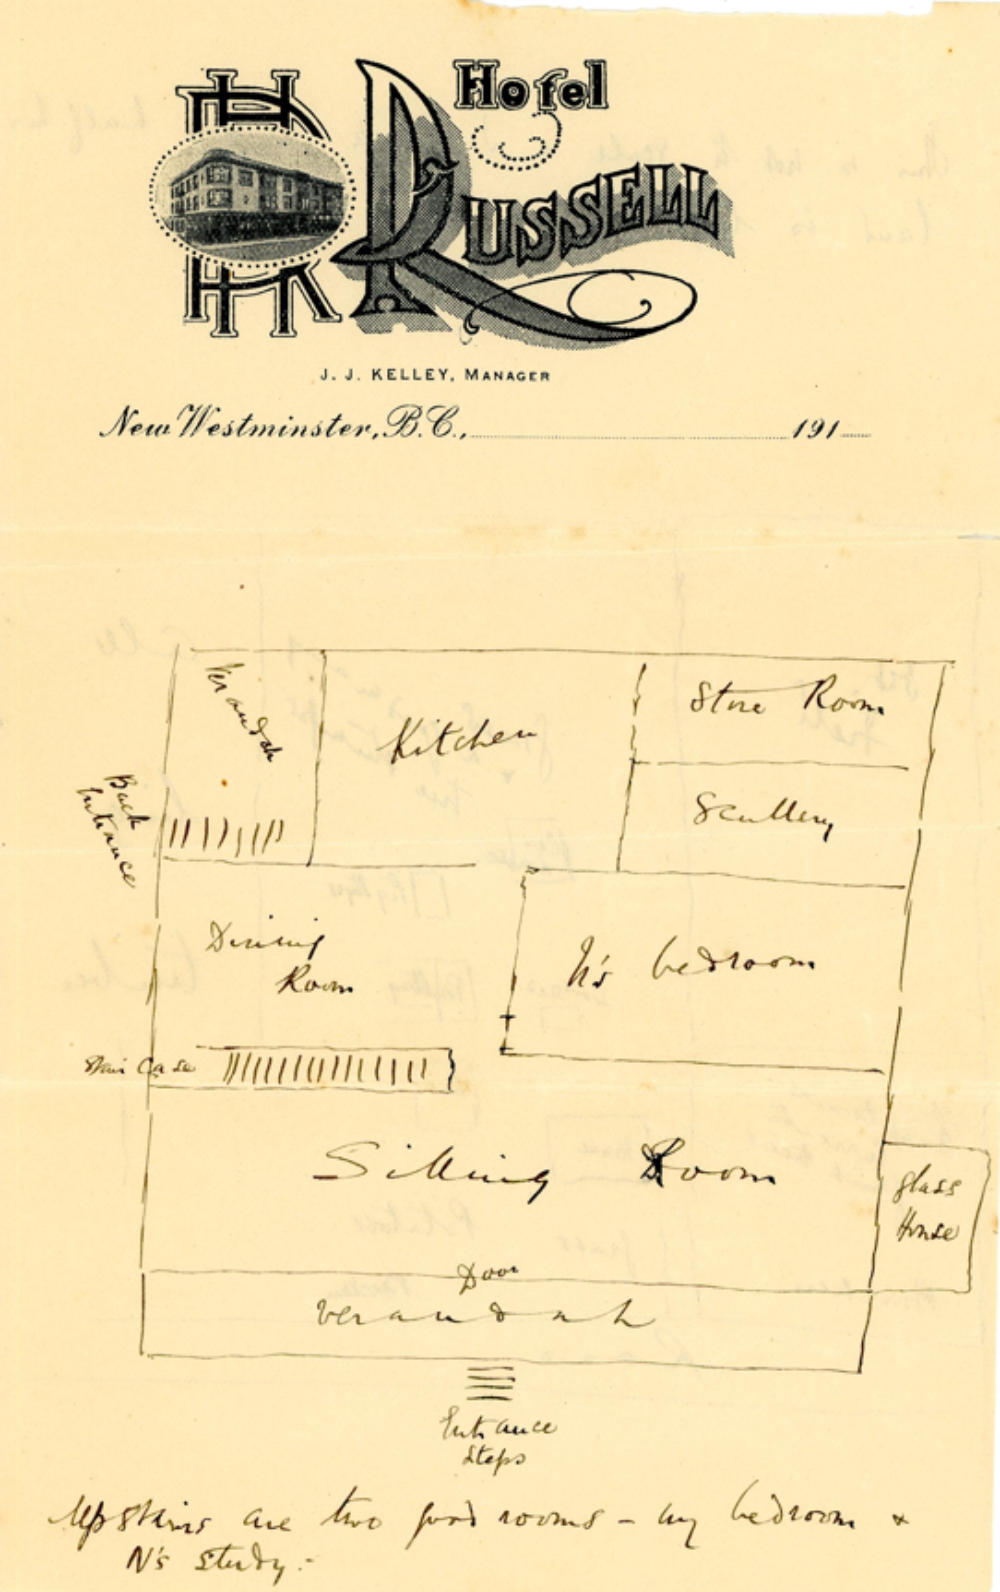 Hotel
RUSSELL
HR
J. J. KELLEY, MANAGER
New Westminster, B.C., 191
Verandah
Kitchen
Store Room
Scullery
Back
Entrance
Dining
Room
N's bedroom
Stair Case
Sitting Room
glass
House
Door
verandah
Entrance
Steps
Upstairs are two good rooms - my bedroom &
N's study.-